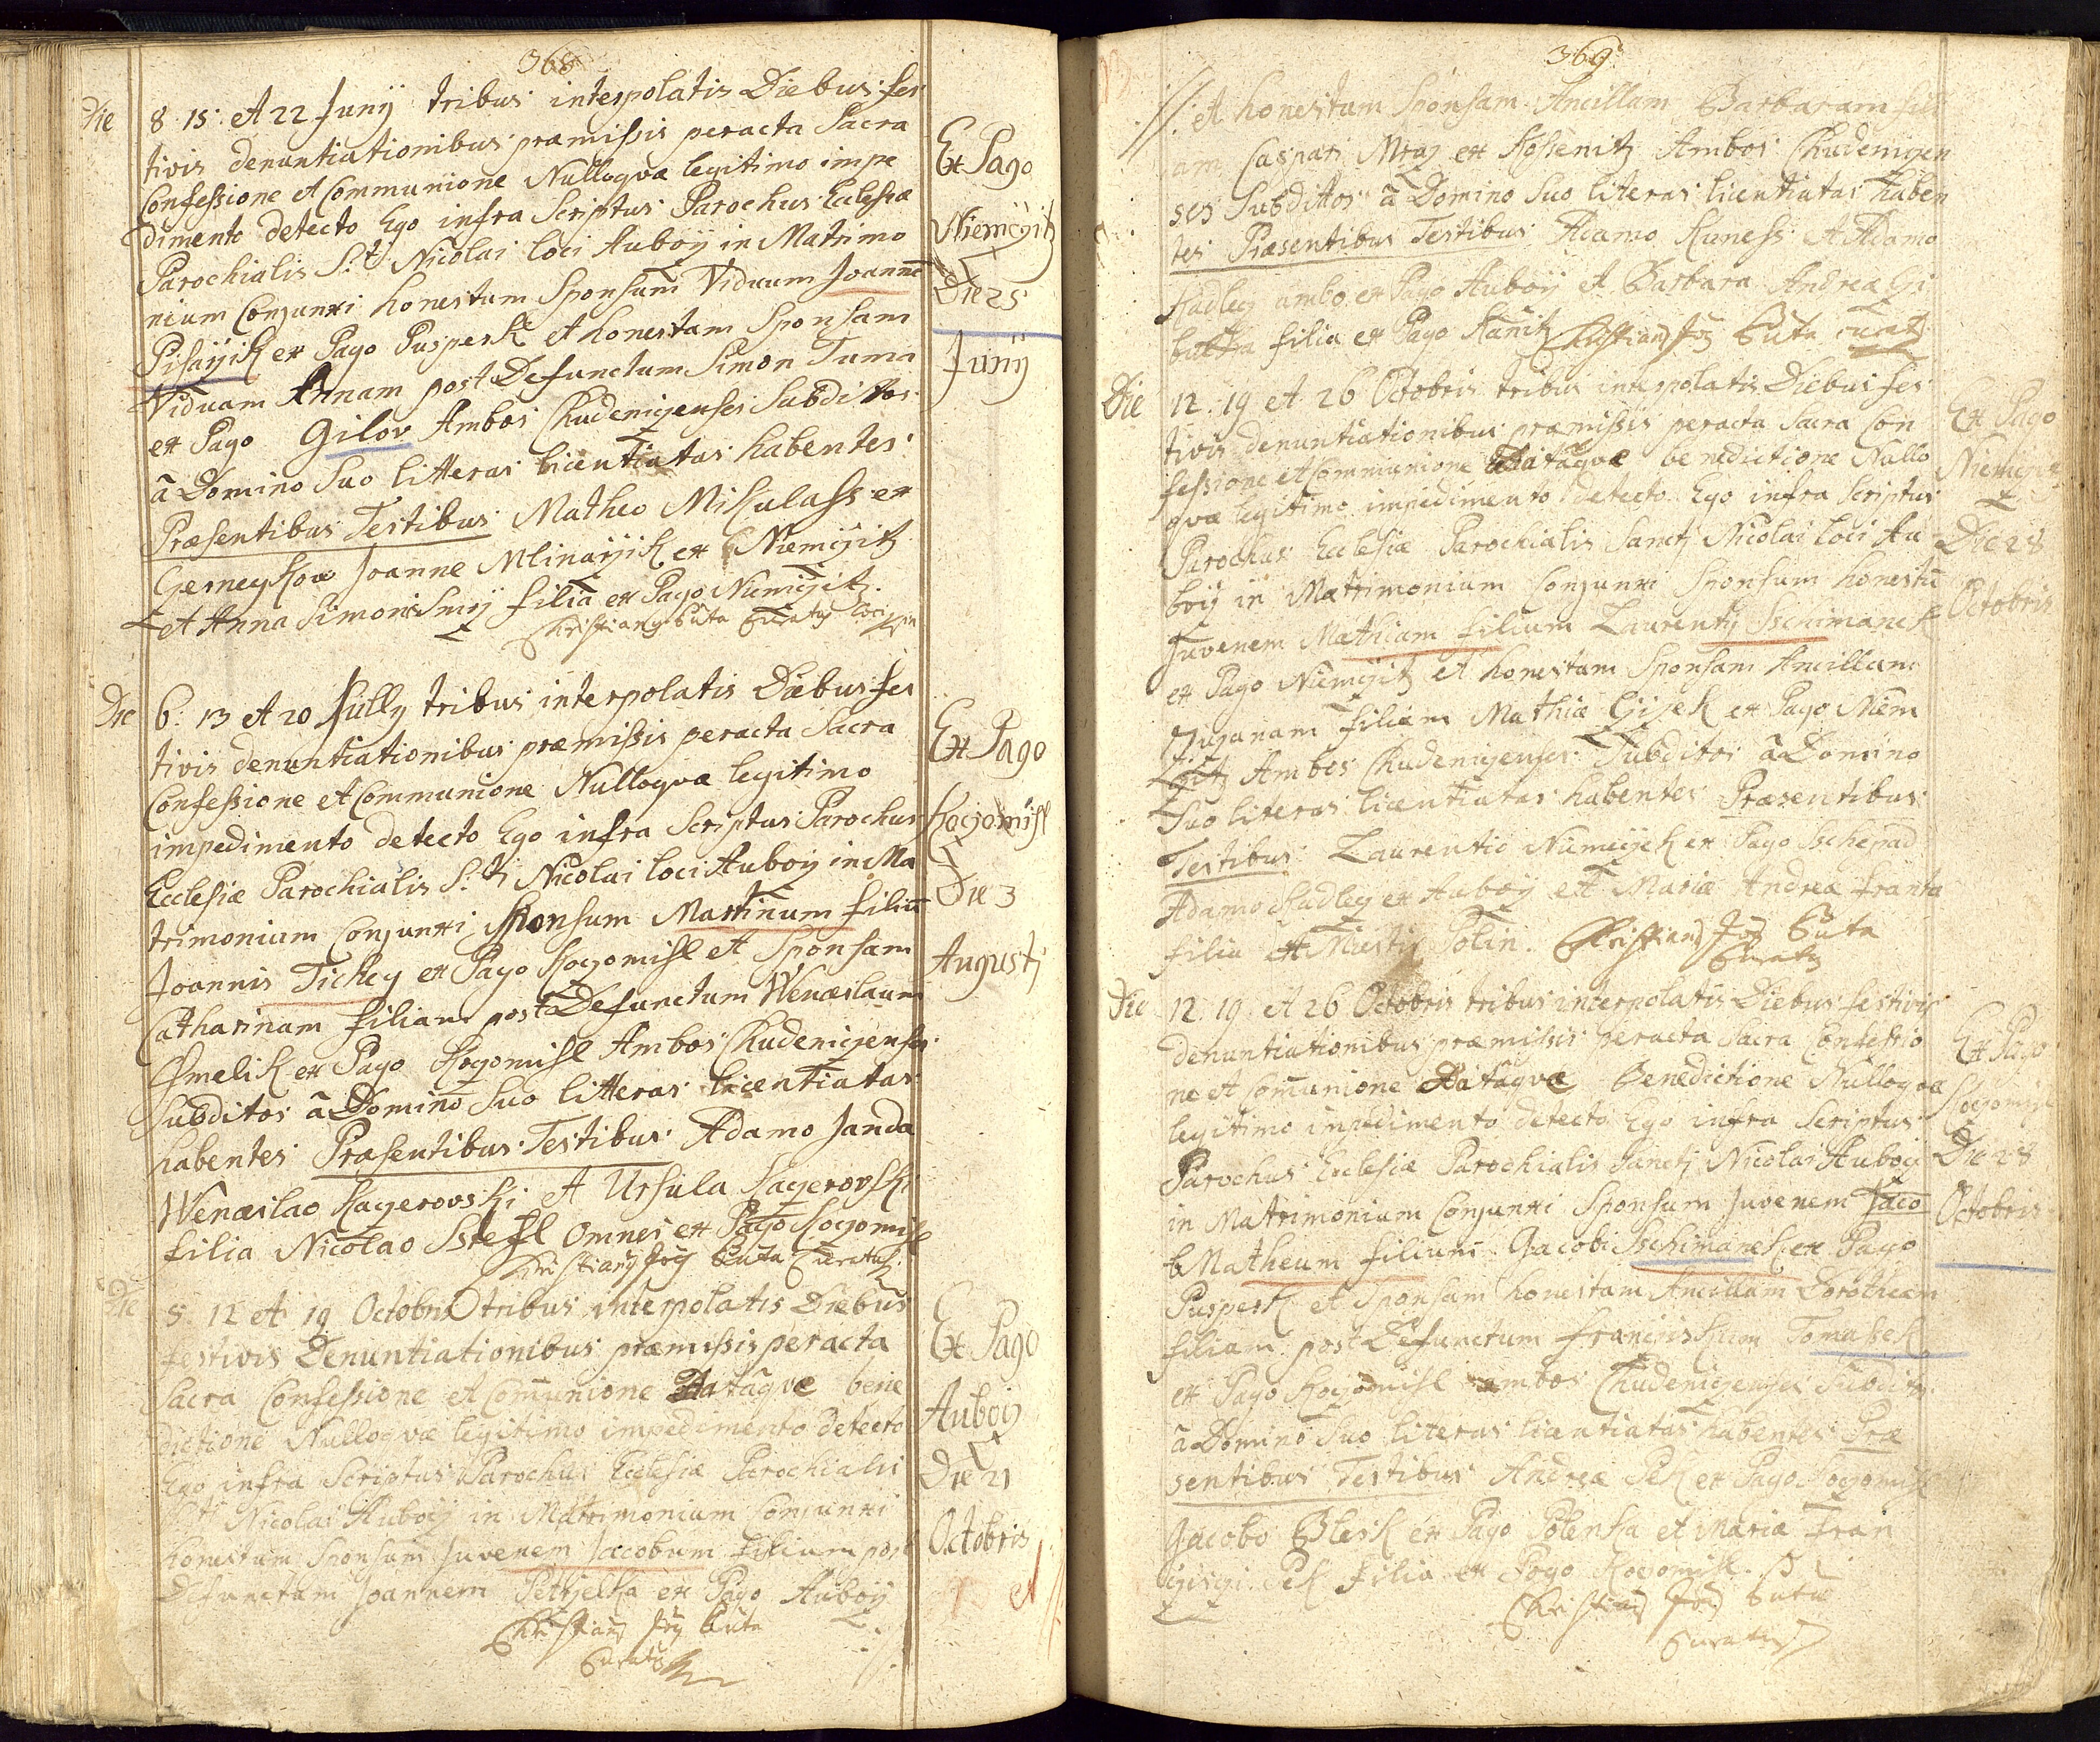 368
Die 8. 15. et 22 Junij tribus interpolatis Diebus fes
tivis denuntiationibus præmissis peracta Sacra
Confessione et Communione Nulloqvæ legitimo impe
dimento detecto Ego infra Scriptus Parochus Eclesiæ
Parochialis S:ti Nicolai loci Auboÿ in Matrimo
nium Conjunxi honestum Sponsum Viduum Joannē
Pisaÿik ex Pago Pusperk et honestam Sponsam
Viduam Annam post Defunctum Simon Tuma
ex Pago Gilov Ambos Chudeniçenses Subditos
â Domino Suo litteras licentiatas habentes
Præsentibus Testibus Matheo Mikulass ex
Gerneykow Joanne Mlinaÿik ex Niemçitz
et Anna Simonis Smÿ filia ex Pago Niemçitz.
Christiang Buta Curatg loci
Ex Pago
Niemçitz
Die 25
Junÿ
Die 6. 13 et 20 Jully tribus interpolatis Diebus fes
tivis denuntiationibus præmissis peracta Sacra
Confessione et Communione Nulloqvæ legitimo
impedimento detecto Ego infra Scriptus Parochus
Ecclesiæ Parochialis S:ti Nicolai loci Auboÿ in Ma
trimonium Conjunxi Sponsum Martinum filiū
Joannis Tichey ex Pago Koçomisl et Sponsam
Catharinam filiam post Defunctum Wenceslaum
Chmelik ex Pago Koçomisl Ambos Chudeniçenses
Subditos â Domino Suo litteras licentiatas
habentes Præsentibus Testibus Adamo Janda
Wenceslao Kaçerovski et Ursula Kaçerovski
filia Nicolao Sstefl omnes ex Pago Koçomisl
Christiang Jog Buta Curatus
Ex Pago
Koçomisl
Die 3
Augusti
Die 5. 12 et 19 Octobris tribus interpolatis Diebus
festivis Denuntiationibus præmissis peracta
Sacra Confessione et Com̄unione Datâqve bene
dictione Nulloqvæ legitimo impedimento detecto
Ego infra Scriptus Parochus Ecclesiæ Parochialis
S:ti Nicolai Auboÿ in Matrimonium Conjunxi
honestum Sponsum Juvenem Jacobum filium post
Defunctam Joannem Petrjelka ex Pago Auboÿ
Christiang Jog Buta
Curatg
Ex Pago
Auboÿ
Die 21
Octobris
369
//: et honestam Sponsam Ancillam Barbaram fili
am Caspari Mraz ex Kossenitz Ambos Chudeniçen
ses Subditos â Domino Suo literas licentiatas haben
tes Præsentibus Testibus Adamo Kuness et Adamo
Hadley ambo ex Pago Auboÿ et Barbara Andreæ Gi
filia ex Pago Kanitz Christiang Jog Buta curatg
Die 12. 19 et 26 Octobris tribus interpolatis Diebus fes
tivis denuntiationibus præmissis peracta Sacra Con
fessione et Communione Datâqvæ benedictione Nullo
qvæ legitimo impedimento detecto Ego infra Scriptus
Parochus Ecclesiæ Parochialis Sancti Nicolai loci Au
boÿ in Matrimonium Conjunxi Sponsum honestū
Juvenem Mathiam filium Laurentij Sschimanek
ex Pago Niemçitz et honestam Sponsam Ancillam
Zuzanam filiam Mathiæ Çÿzek ex Pago Niem
çitz Ambos Chudeniçenses Subditos â Domino
Suo literas licentiatas habentes Præsentibus
Testibus Laurentio Niemeÿçk ex Pago Sschepad
Adamo Hadley ex Auboÿ et Mariæ Andreæ Franta
filia ex Miestiz Polin. Christiang Jog Buta
Curatg
Ex Pago
Niemçitz
Die 28
Octobris
Die 12. 19. et 26 Octobris tribus interpolatis Diebus festivis
denuntiationibus præmissis peracta Sacra Confessio
ne et Com̄unione Datâqvæ Benedictione Nulloqvæ
legitimo impedimento detecto Ego infra Scriptus
Parochus Ecclesiæ Parochialis Sancti Nicolai Auboÿ
in Matrimonium Conjunxi Sponsum Juvenem Jaco
b Matheum filium Jacobi Sschimanek ex Pago
Pusperk et Sponsam honestam Ancillam Dorotheam
filiam post Defunctum Franciskum Tomassek
ex Pago Koçomisl ambos Chudeniçenses Subditos
â Domino Suo literas licentiatas habentes Præ
sentibus Testibus Andreæ Pek ex Pago Koçomisl
Jacobo Blesk ex Pago Polenka et Maria Fran
çisçi Pek filia ex Pago Koçomisl.
Christiang Jog Buta
Curatg
Ex Pago
Koçomisl
Die 28
Octobris